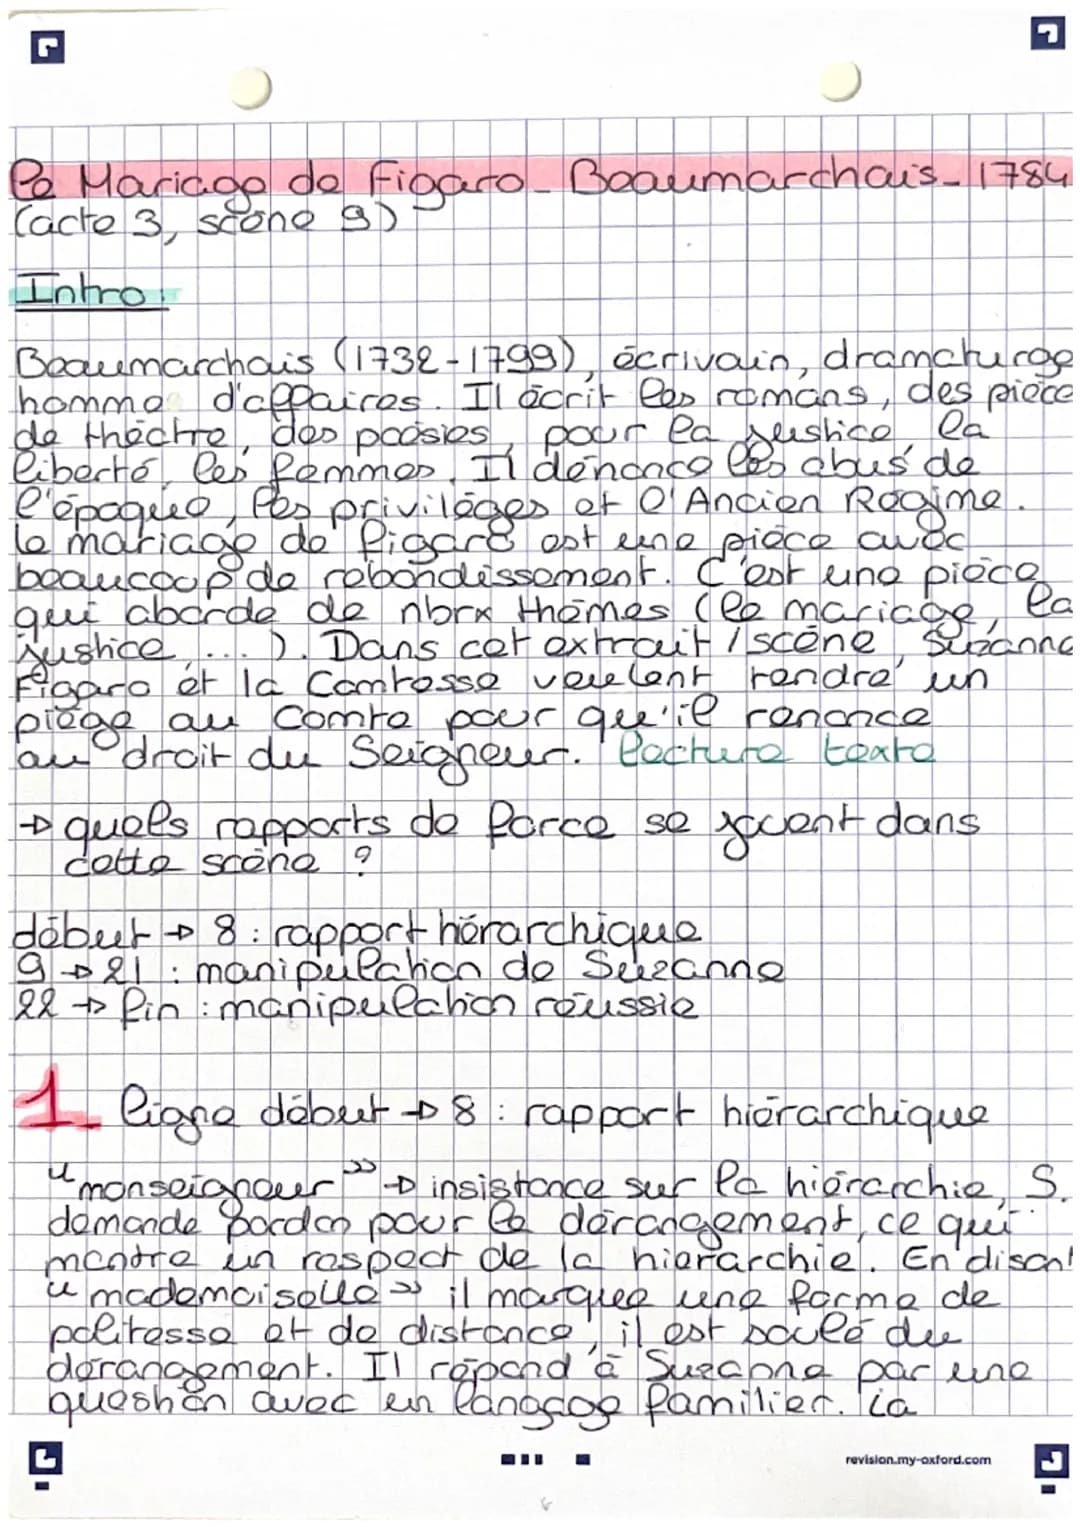 Le Mariage de Figaro_ Beaumarchais_ 1784
(acte 3, scène 9)
Intro :
Beaumarchais (1732-1799), écrivain, dramaturge
homme d'affaires. Il écrit les romans, des pièce
de théâtre, des poésies, pour la justice, la
liberté, les femmes. Il dénonce les abus de
l'époque, les privilèges et l'Ancien Régime.
le mariage de figaro est une pièce avec
beaucoup de rebondissement. C'est une pièce
qui aborde de nbrx thèmes (le mariage, la
justice, ... ). Dans cet extrait / scène, Suzanne
Figaro et la Comtesse veulent tendre un
piège au Comte pour qu'il renonce
au droit du Seigneur. lecture texte
→ quels rapports de force se jouent dans
cette scène ?
début → 8 : rapport hérarchique
9 → 21 : manipulation de Suzanne
22 → fin : manipulation réussie
1_ ligne début → 8 : rapport hiérarchique
"monseigneur" → insistance sur la hiérarchie, S.
demande pardon pour le dérangement, ce qui
montre un respect de la hiérarchie. En disant
"mademoiselle" il marquee une forme de
politesse et de distance, il est soulé du
dérangement. Il répond à Suzanne par une
question avec un langage familier. la
revision.my-oxford.com